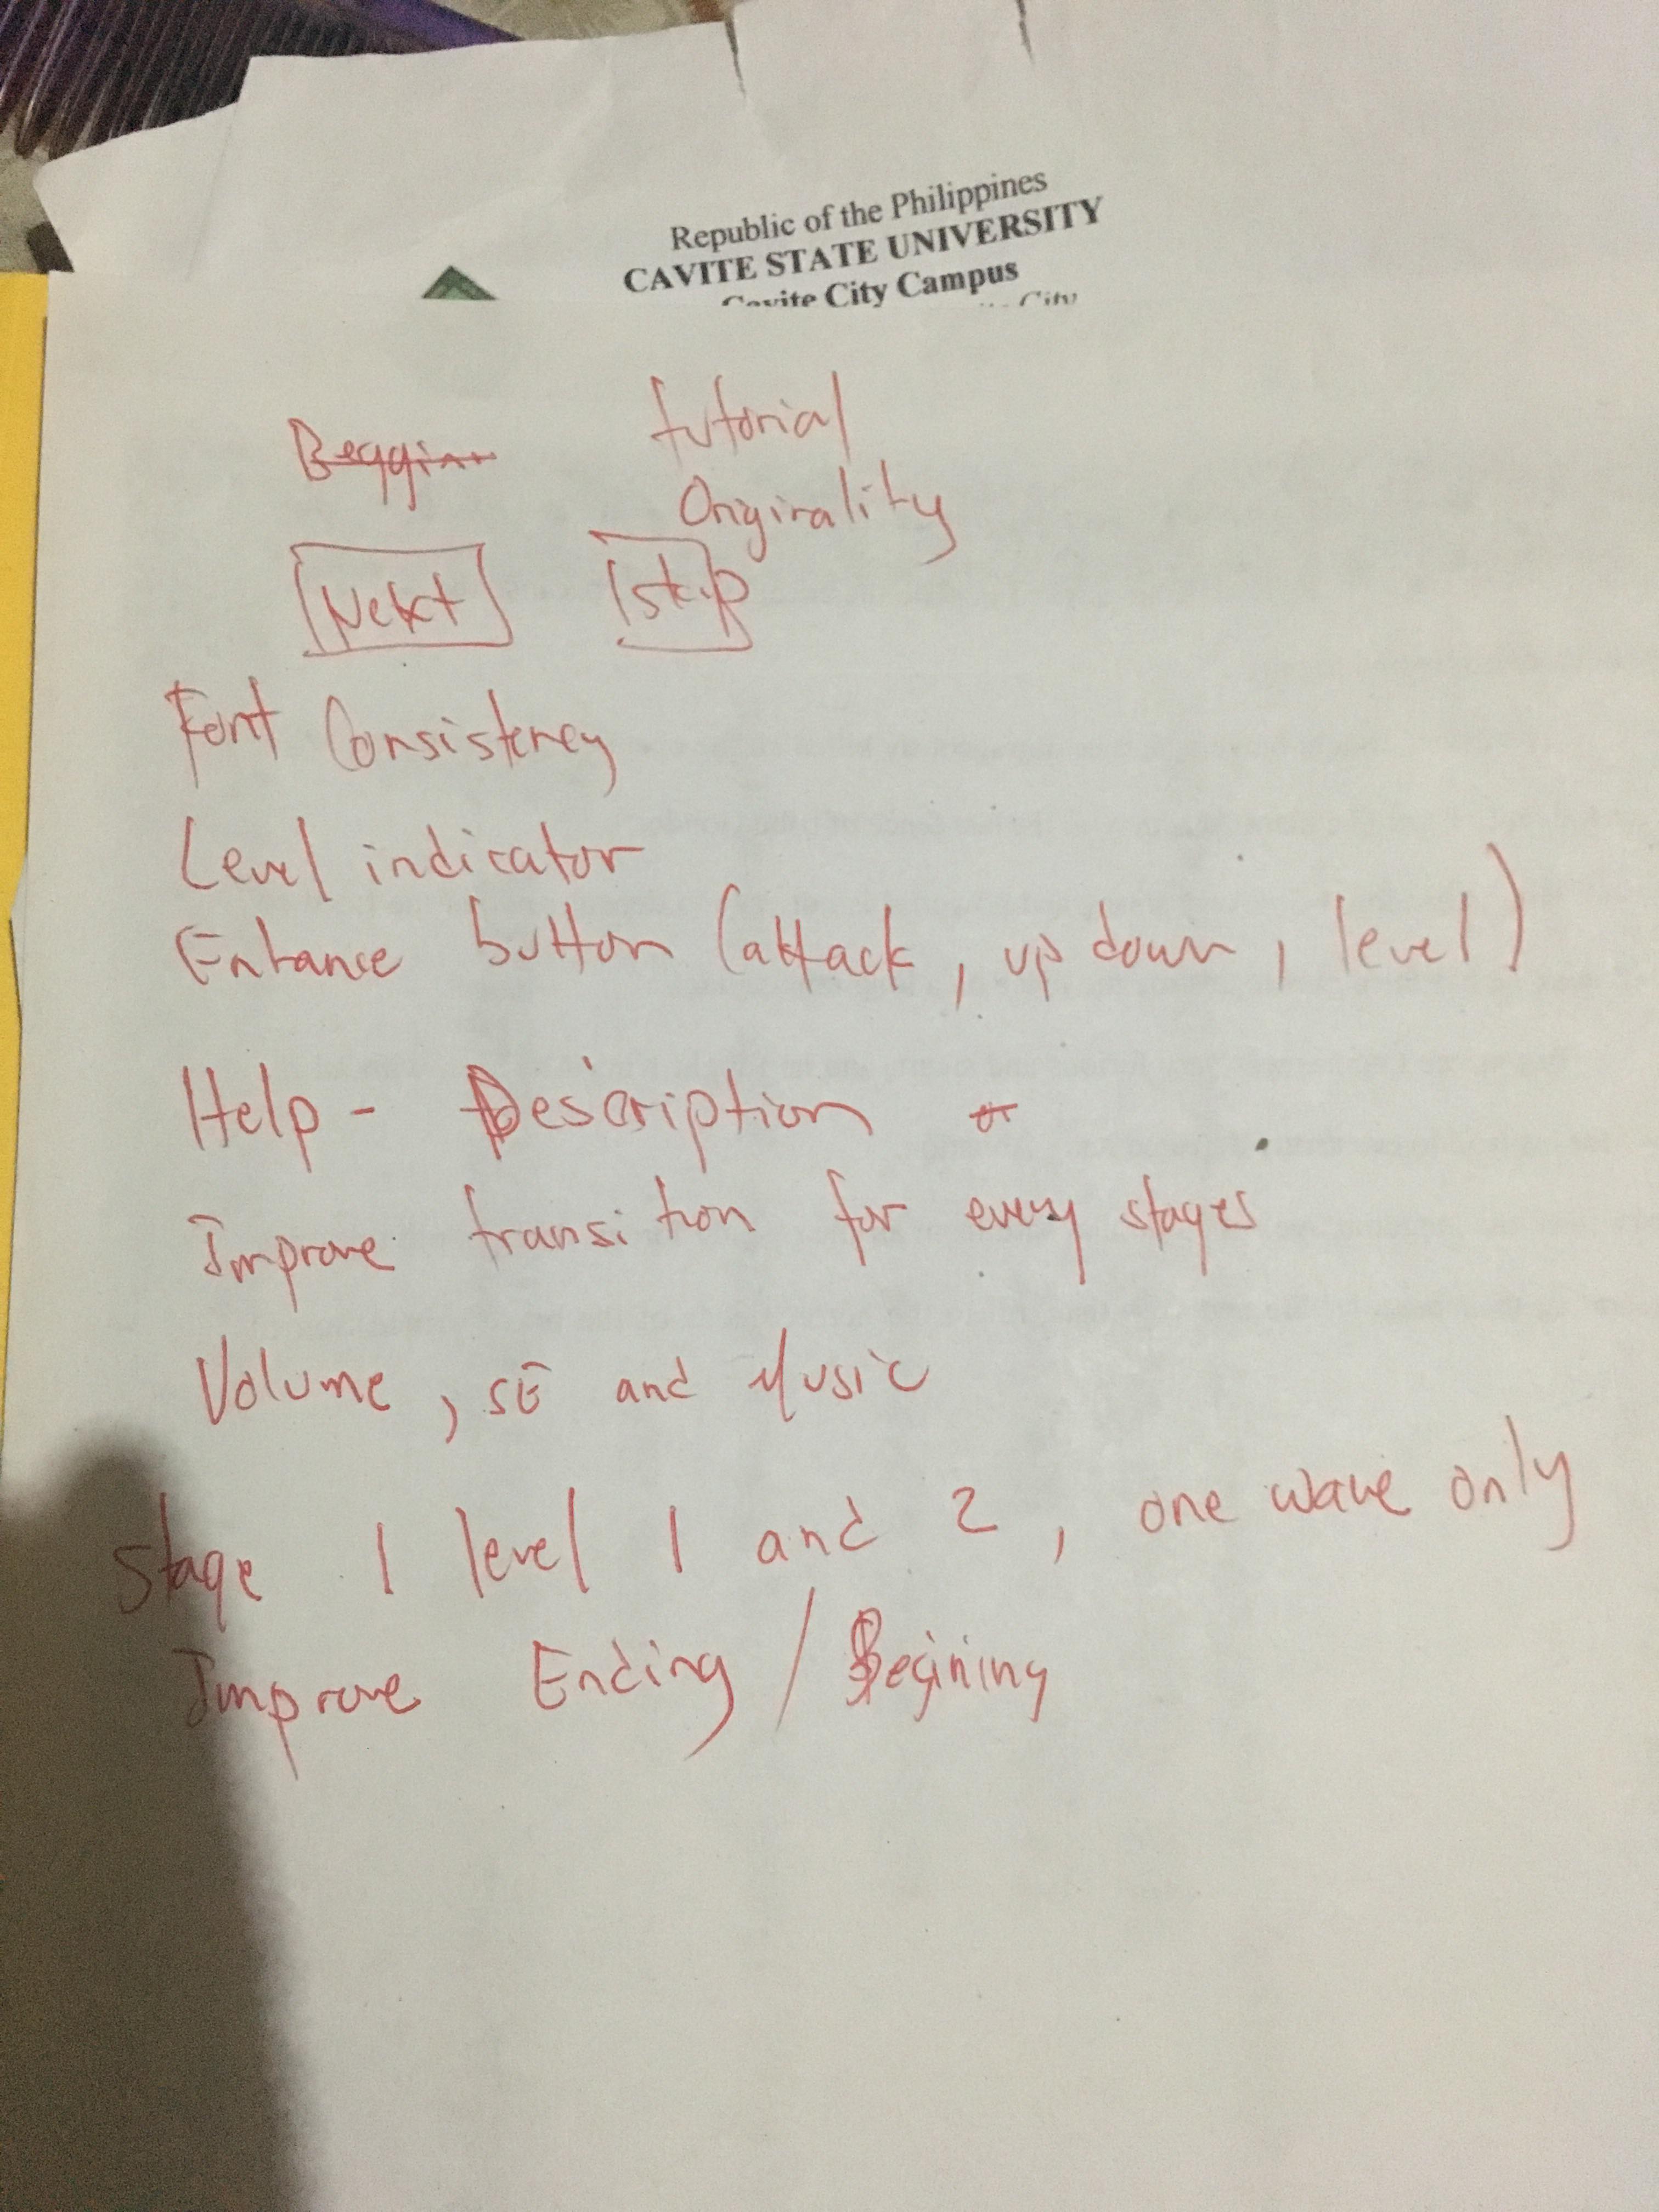 Republic of the Philippines
CAVITE STATE UNIVERSITY
Cavite City Campus
City
Beggin
tutorial
Originality
Next
Skip
Font Consistency
Level indicator
Enhance button (attack, up down, level)
Help - Description or
Improve transition for every stages
Volume, SE and Music
Stage 1 level 1 and 2, one wave only
Improve Ending / Begining